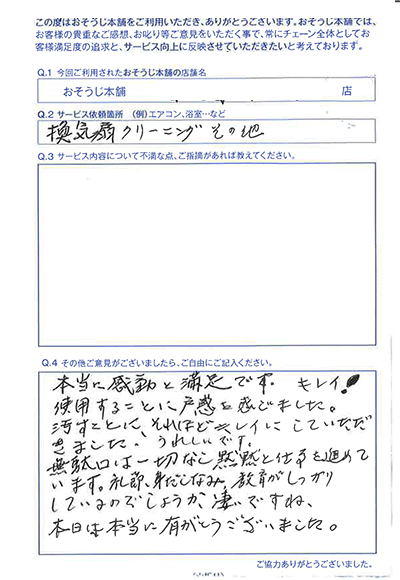 この度はおそうじ本舗をご利用いただき、ありがとうございます。おそうじ本舗では、
お客様の貴重なご感想、お叱り等ご意見をいただく事で、常にチェーン全体としてお
客様満足度の追求と、サービス向上に反映させていただきたいと考えております。
Q.1 今回ご利用されたおそうじ本舗の店舗名
おそうじ本舗 店
Q.2 サービス依頼箇所 (例)エアコン、浴室…など
換気扇クリーニング その他
Q.3 サービス内容について不満な点、ご指摘があれば教えてください。
Q.4 その他ご意見がございましたら、ご自由にご記入ください。
本当に感動と満足です。 キレイ!
使用することに戸惑を感じました。
汚すことに、それほどキレイにしていただ
きました、うれしいです。
無駄口は一切なし黙黙と仕事を進めて
います。礼節、身だしなみ、教育がしっかり
しているのでしょうか、凄いですね、
本日は本当に有がとうございました。
ご協力ありがとうございました。